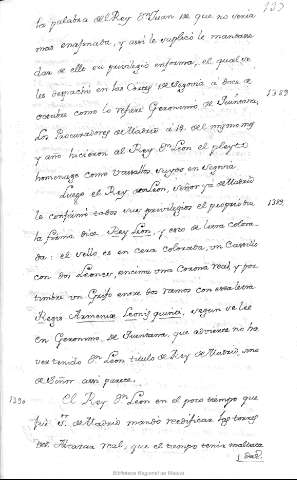 la palabra del Rey Dn Juan de que no seria
mas enagenada, y assi le suplicó le mandase
dar de ello su privilegio en forma, el qual se
les despachó en las Cortes de Segovia á doce de
octubre como lo refiere Geronimo de Quintana,
Los Procuradores de Madrid á 19. del mismo mes
y año hicieron al Rey Dn Leon el pleyto
homenage como Vasallos suyos en Segovia
Luego el Rey Dn Leon, Señor ya de Madrid
le confirmó todos sus privilegios el propio dia
la firma dice Rey Leon, y esto de letra colora-
da: el sello es en cera colorada, un Castillo
con dos Leones, encima una Corona real, y por
timbre un Grifo entre dos ramos con esta letra
Regis Armenia Leonis quinti, segun se lee
en Geronimo de Quintana, que advierte no ha
ver tenido Dn Leon titulo de Rey de Madrid, sino
de Señor assi parece.
1390 El Rey Dn Leon en el poco tiempo que
fué Sr. de Madrid mandó reedificar las torres
del Alcazar real, que el tiempo tenia maltrata
das
1389
1389
Biblioteca Regional de Madrid